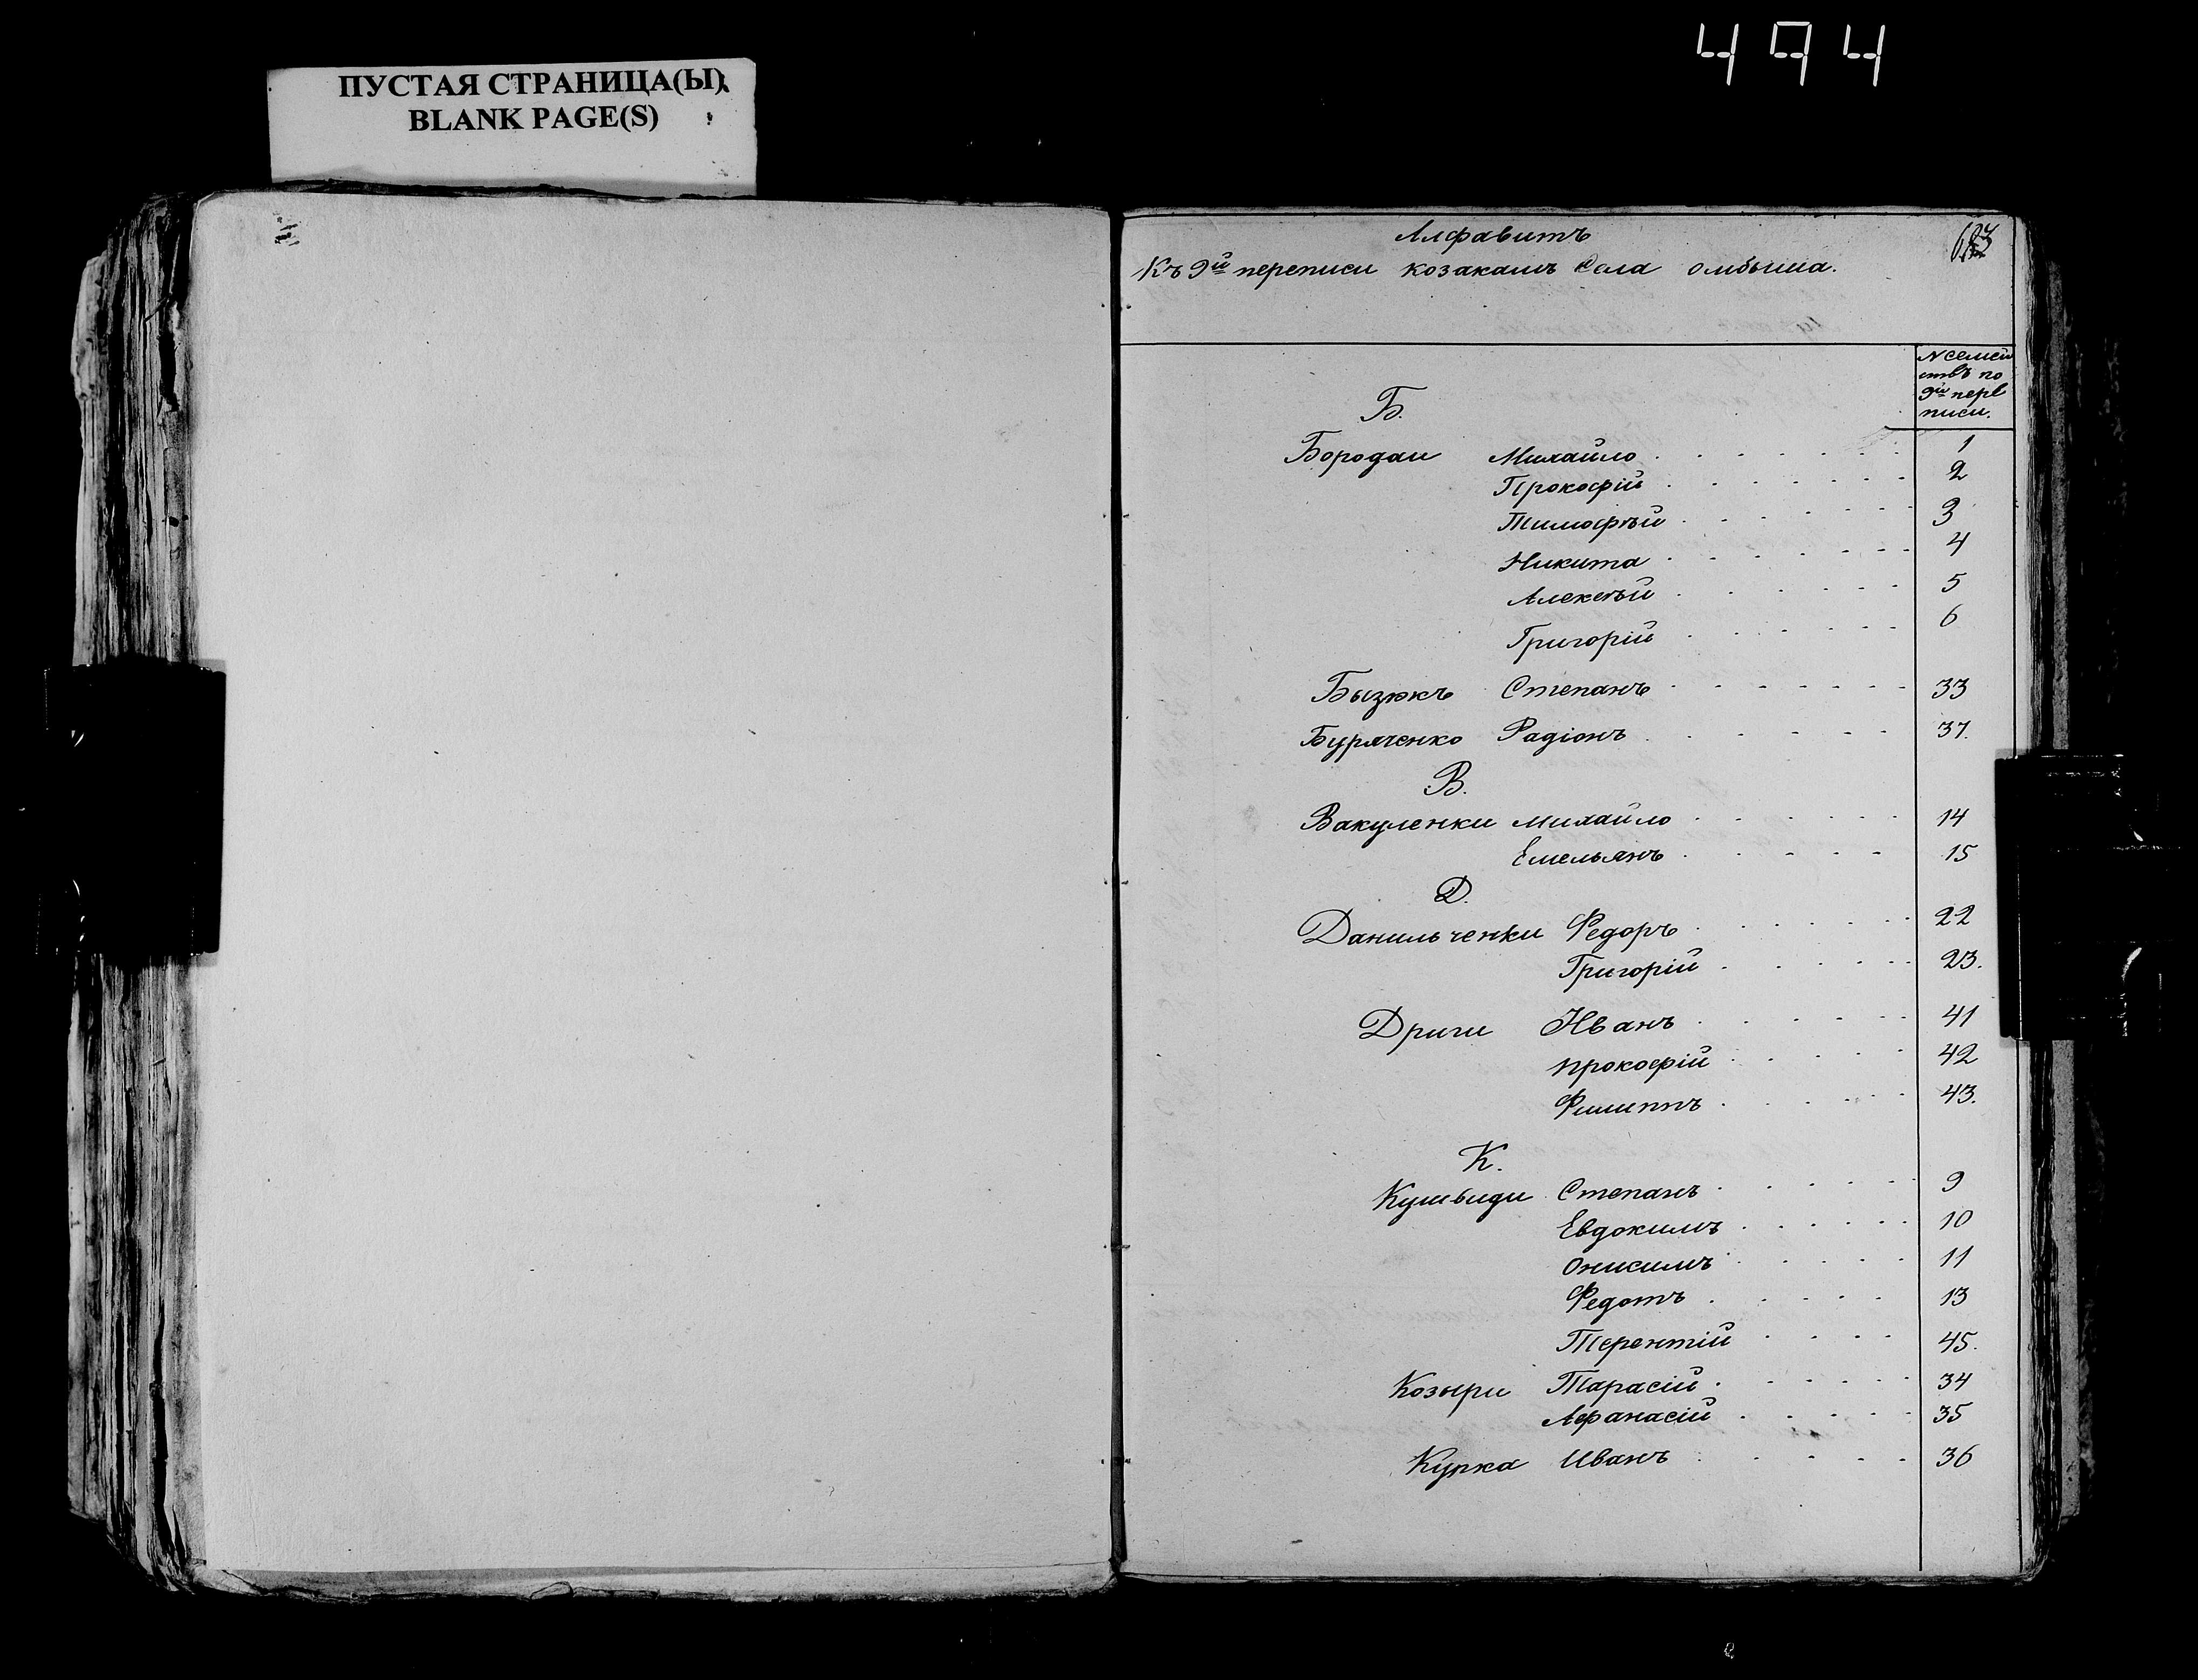 494
ПУСТАЯ СТРАНИЦА(Ы)
BLANK PAGE(S)
Алфавитъ
Къ 9й переписи козакамъ села Омбыша.
N семей
ствъ по
9й пере
писи.
Б.
Бородаи Михайло 1
Прокофій 2
Тимофѣй 3
Никита 4
Алексѣй 5
Григорій 6
Бызюкъ Степанъ 33
Буряченко Радіонъ 37.
В.
Вакуленки Михайло 14
Емельянъ 15
Д.
Данильченки Федоръ 22
Григорій 23.
Дриги Иванъ 41
Прокофій 42
Филиппъ 43.
К.
Кушвиди Степанъ 9
Евдокимъ 10
Онисимъ 11
Федотъ 13
Терентій 45.
Козыри Тарасій 34
Афанасій 35
Курка Иванъ 36